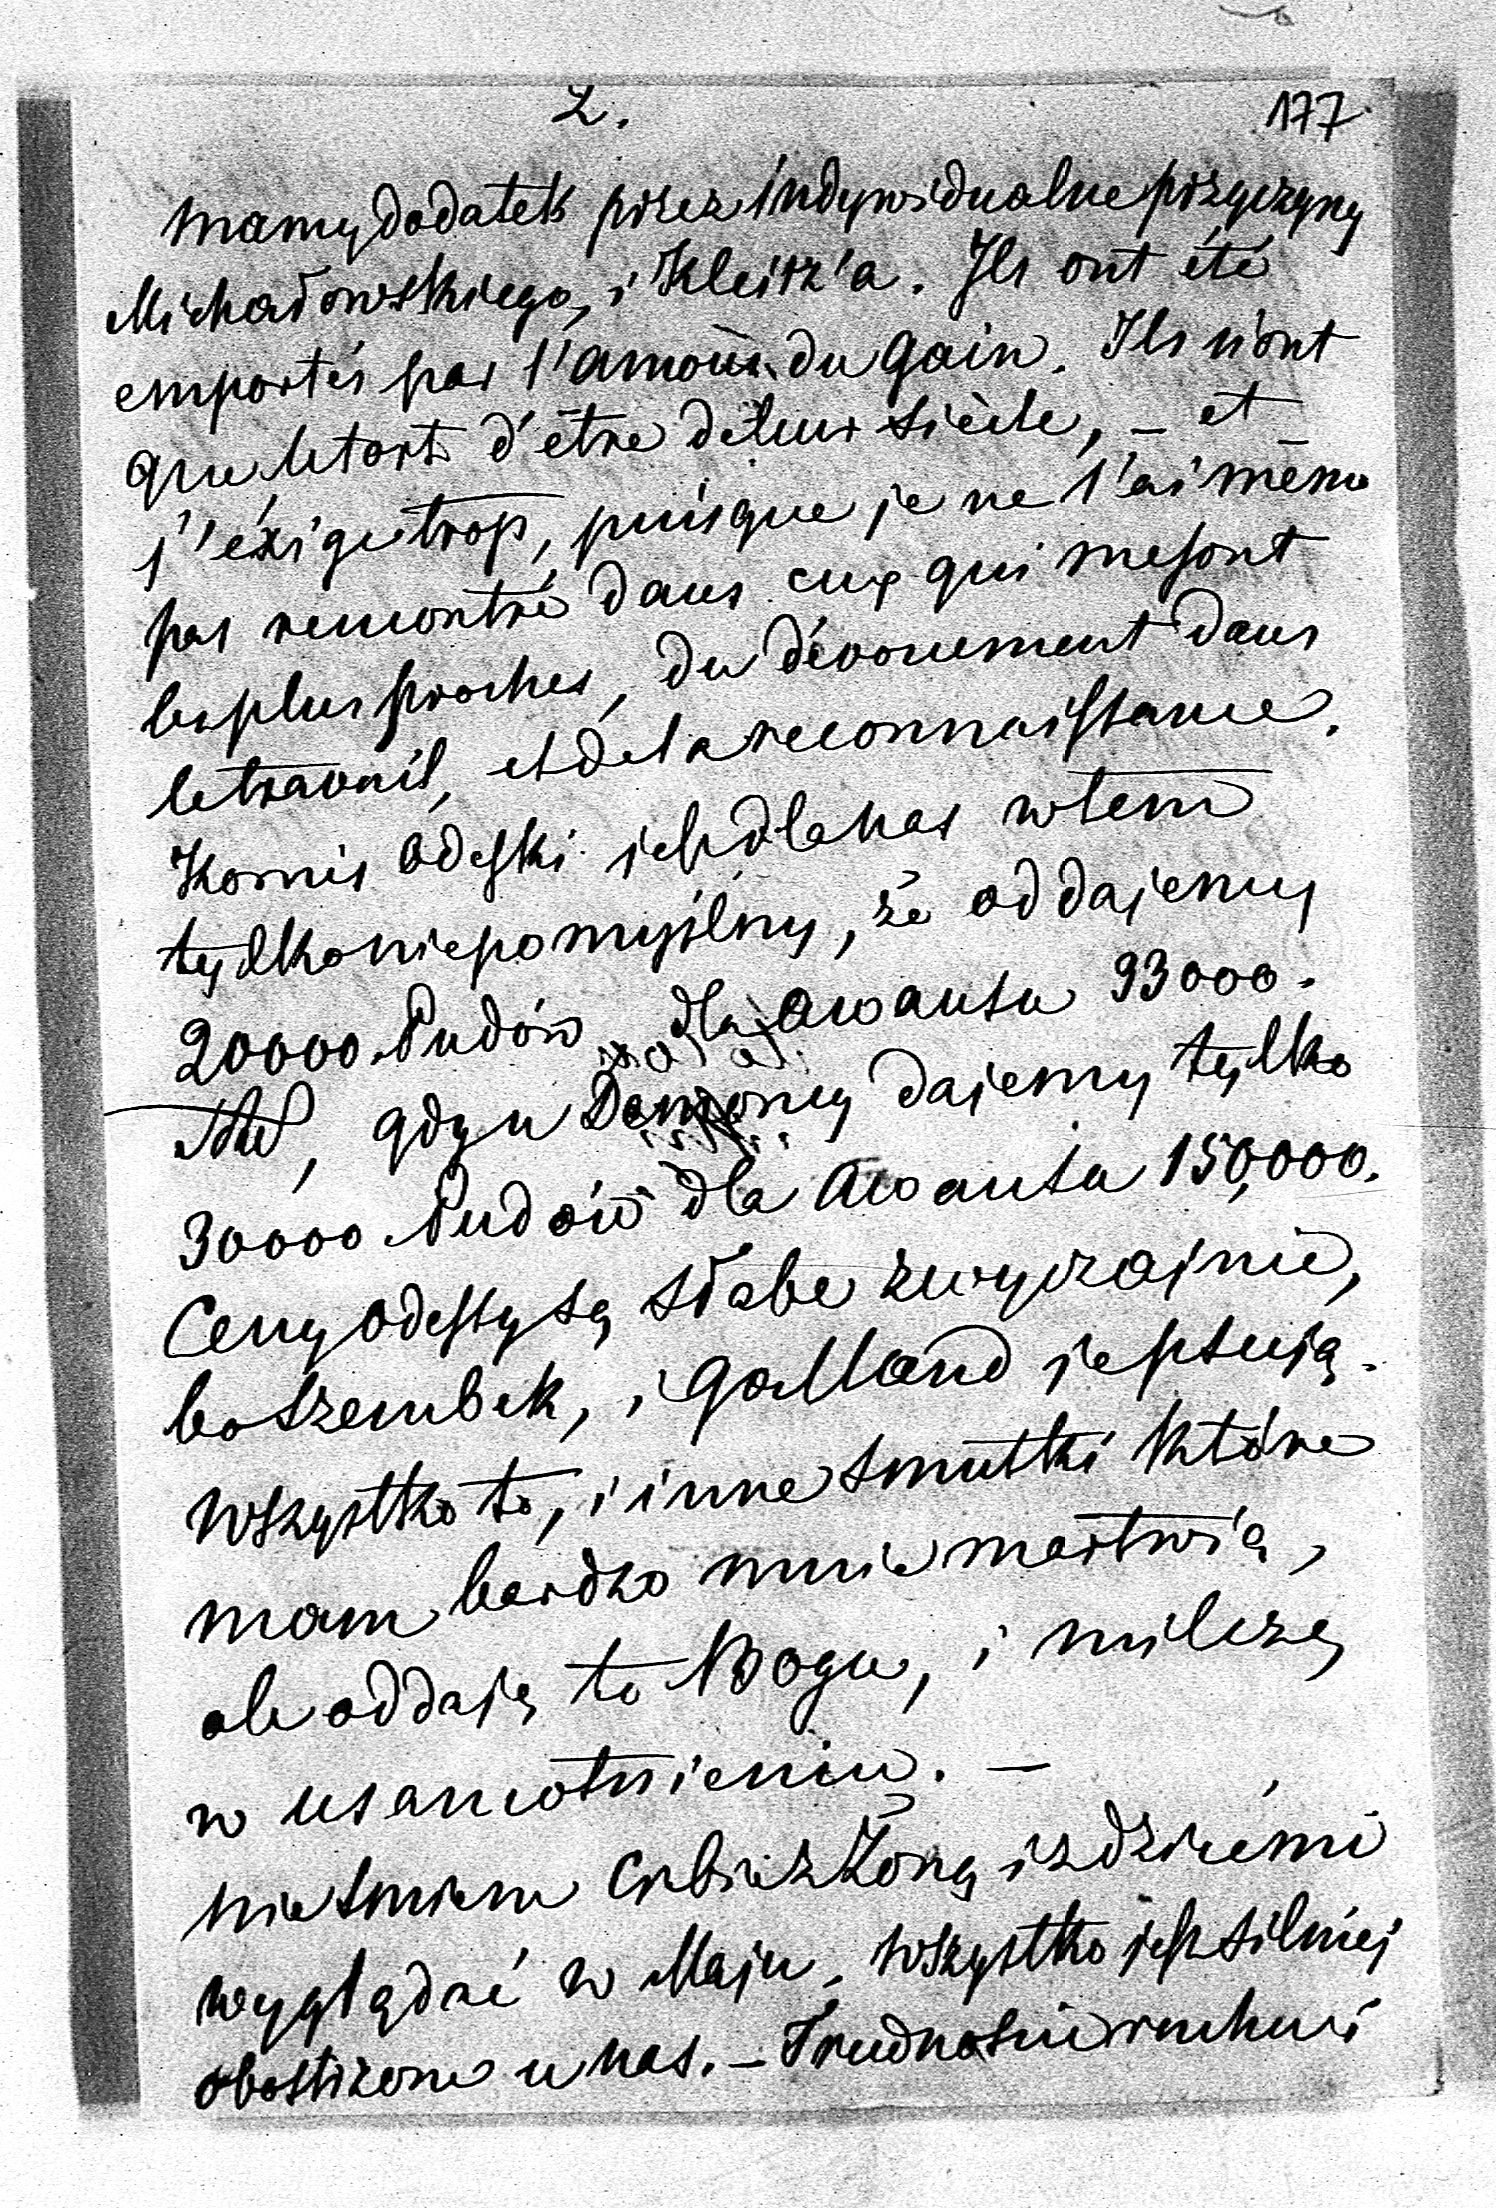 2.
177
mamy dodatek przez indywidualne przyczyny
Michałowskiego, i Kleitz'a. Ils ont été
emportés par l'amour du gain. Ils n'ont
que le tort d'être de leur siècle, – et –
j'éxige trop, puisque je ne l'ai même
pas rencontré dans eux qui me sont
les plus proches, du dévouement dans
le travail, et de la reconnaissance.
Komis Odeski jest dla nas w tem
tylko niepomyślny, że oddajemy
20000 Pudów dla awansu 93000.
gdy u dajemy tylko
30000 Pudów dla awansu 150,000.
Ceny Odessy są słabe zwyczajnie,
bo Szembek, i Galland je psują.
Wszystko to, i inne smutki które
mam bardzo mnie martwią,
ale oddaję to Bogu, i milczę
w usamotnieniu. –
nie śmiem Ciebie z Żoną i z dziećmi
wyglądać w Maju. Wszystko jest silniej
obostrzone u nas. – Trudności ruchu i